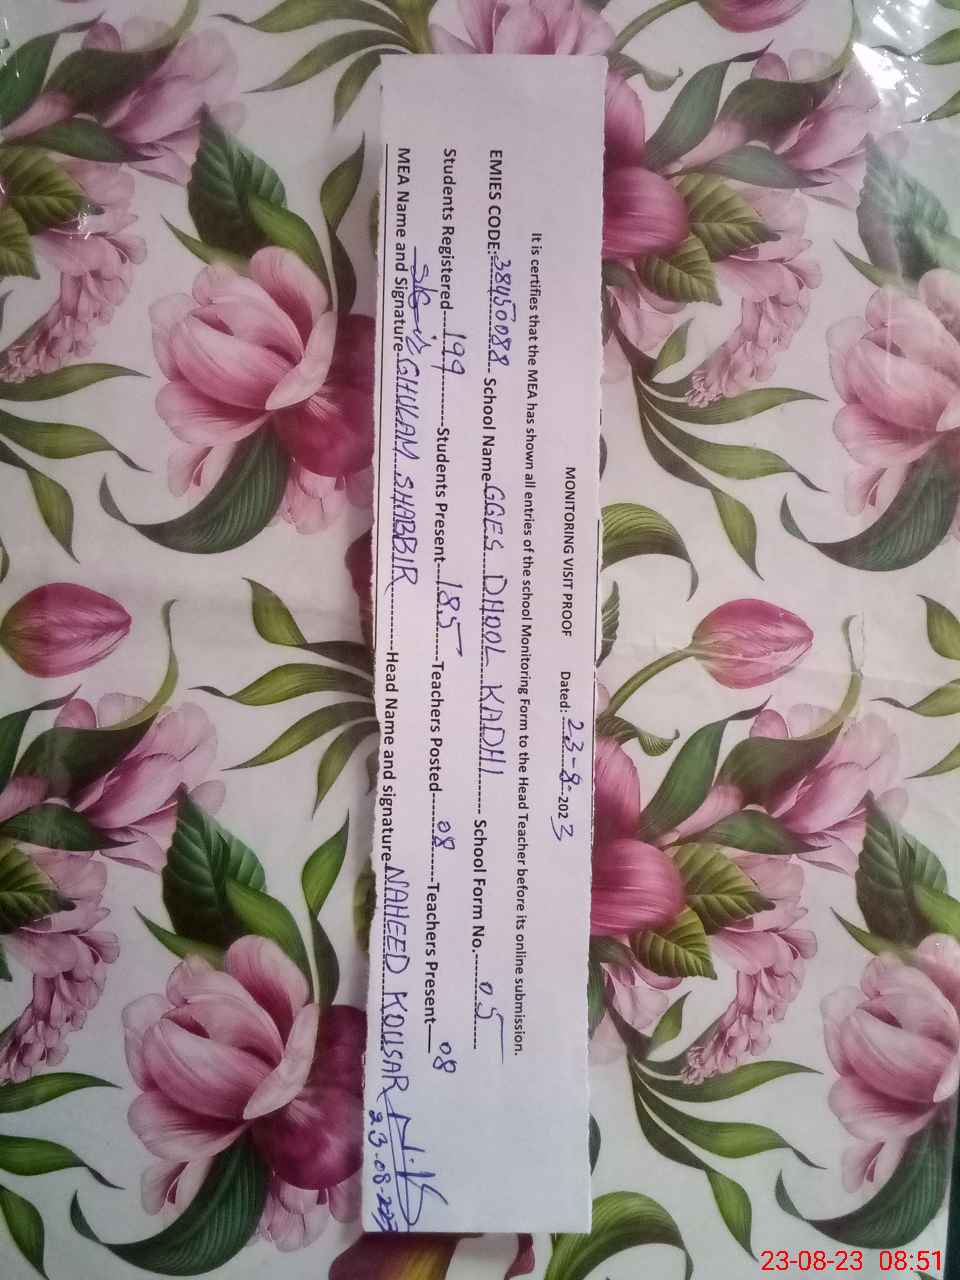 MONITORING VISIT PROOF Dated: 23-8-2023
It is certifies that the MEA has shown all entries of the school Monitoring Form to the Head Teacher before its online submission.
EMIES CODE: 38450088 School Name GGES DHOOL KADHI School Form No. 05
Students Registered 199 Students Present 185 Teachers Posted 08 Teachers Present 08
MEA Name and Signature GHULAM SHABBIR Head Name and signature NAHEED KOUSAR
23-08-
23-08-23 08:51